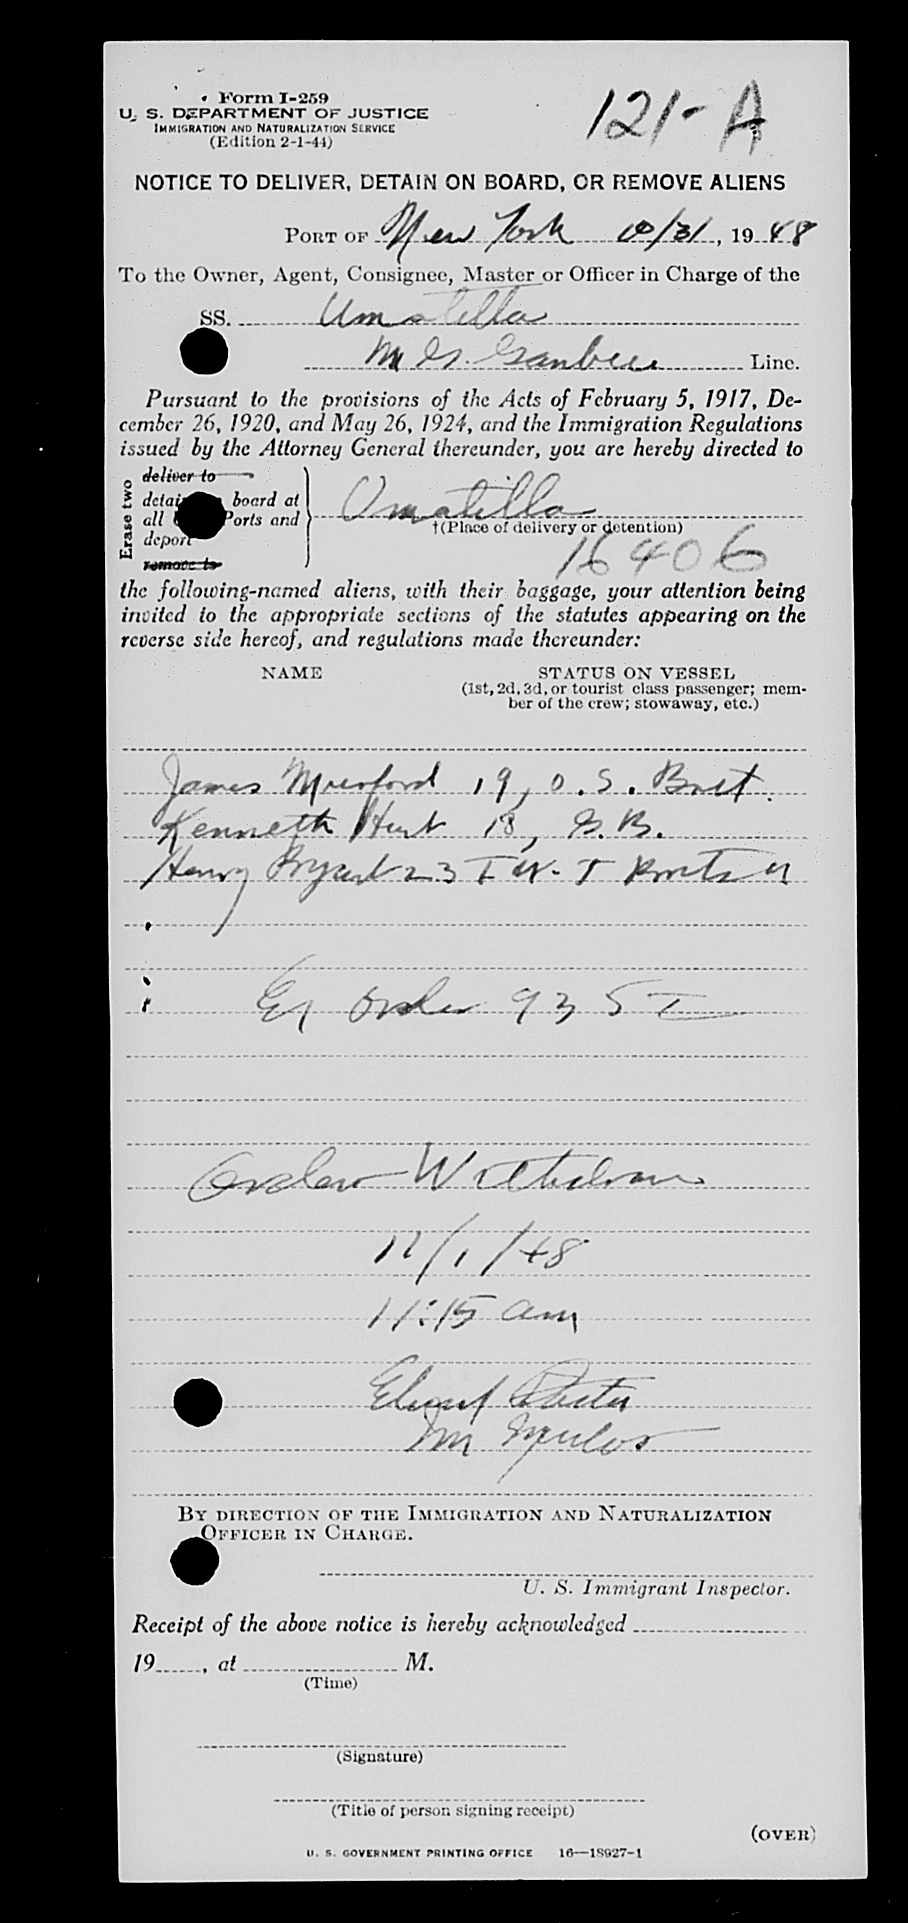 Form I-259
U. S. DEPARTMENT OF JUSTICE
IMMIGRATION AND NATURALIZATION SERVICE
(Edition 2-1-44)
121-A
NOTICE TO DELIVER, DETAIN ON BOARD, OR REMOVE ALIENS
PORT OF New York 10/31, 1948
To the Owner, Agent, Consignee, Master or Officer in Charge of the
SS. Umatilla
Line.
Pursuant to the provisions of the Acts of February 5, 1917, De-
cember 26, 1920, and May 26, 1924, and the Immigration Regulations
issued by the Attorney General thereunder, you are hereby directed to
Erase two
deliver to
board at
all Ports and
deport
remove to
Umatilla
†(Place of delivery or detention)
16406
the following-named aliens, with their baggage, your attention being
invited to the appropriate sections of the statutes appearing on the
reverse side hereof, and regulations made thereunder:
NAME
STATUS ON VESSEL
(1st, 2d, 3d, or tourist class passenger; mem-
ber of the crew; stowaway, etc.)
James 19, O.S. Brit.
Kenneth 18, G.B.
Henry 23
Order 935
Order
/1/48
11:15 am
BY DIRECTION OF THE IMMIGRATION AND NATURALIZATION
OFFICER IN CHARGE.
U. S. Immigrant Inspector.
Receipt of the above notice is hereby acknowledged
19, at M.
(Time)
(Signature)
(Title of person signing receipt)
(OVER)
U. S. GOVERNMENT PRINTING OFFICE 16—18927-1